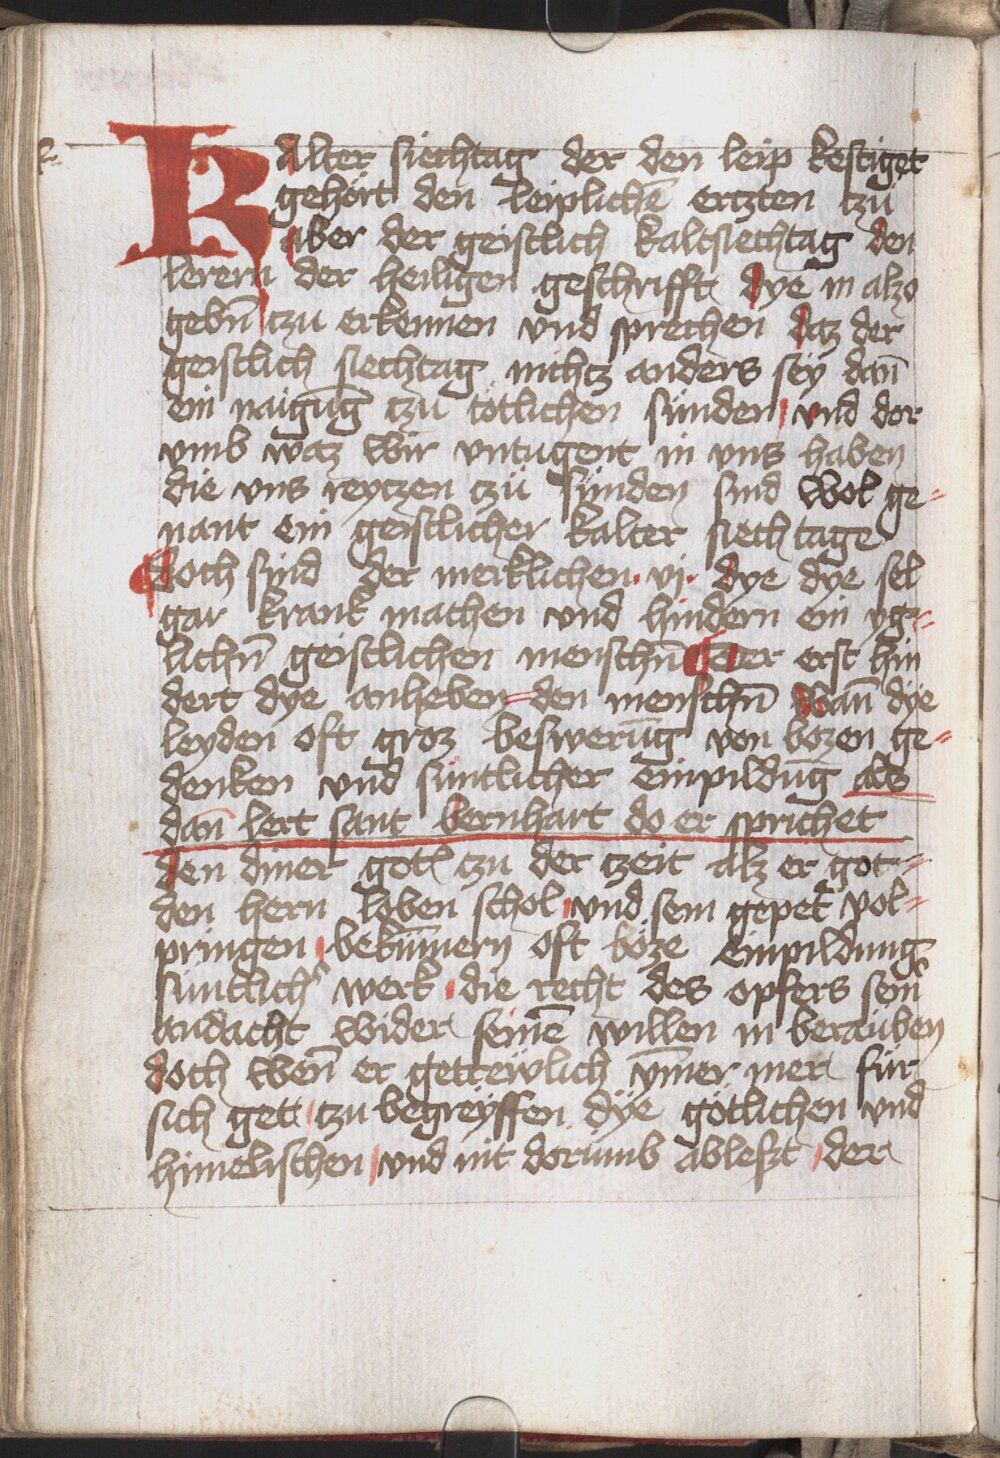 KAlter siechtag der den leip kestiget
gehört den leiplichē ertzten tzu
aber der geistlich kaltsiechtag den
lerern der heiligen geschrifft dye in alzo
gebn̄ tzu erkennen vnd sprechen daz der
geistlich siechtag nichtz anders sey dan̄
ein naigūg tzu tötlichen sünden vnd dor
vmb waz wir vntugent in vns haben
die vns reytzen tzü sünden sind wol ge=
nant ein geistlicher kalter siechtage
¶doch sind der merklichen · vj · dye dye sel
gar krank machen vnd hindern ein yg=
lichn̄ geistlichen menschn̄ ¶ Der erst hin
dert dye anheben=den menschn̄ wan̄ dye
leyden oft groz beswerūg von bozen ge=
denken vnd süntlicher einpildūg als
dan̄ lert sant bernhart do er sprichet
den diner gotz tzu der tzeit alz er got=
den hern loben schol vnd sein gepet vol=
pringen bekūmern oft böze einpildung
süntlich' werk die recht des opfers sein̄
andacht wider seinē willen in berauben
doch wen̄ er getrewlich ȳmer mer für
sich gett tzu begreyffen dye götlichen vnd
himelischen vnd nit dorumb ableszt der